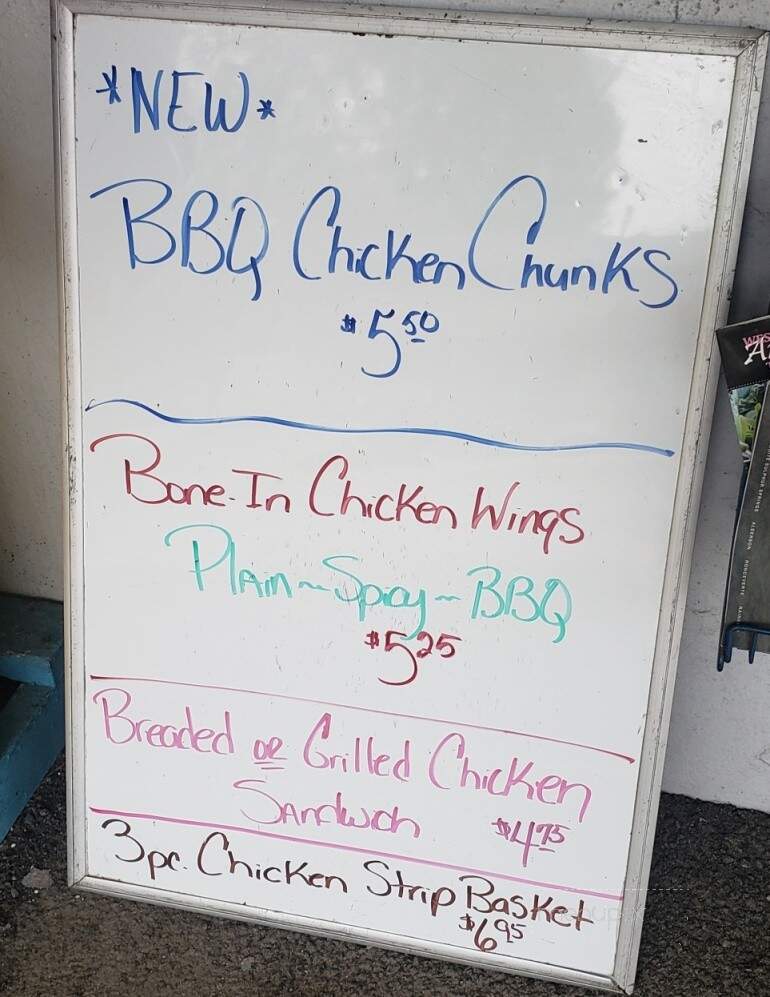 *NEW*
BBQ Chicken Chunks
$5.50
Bone-In Chicken Wings
Plain~Spicy~BBQ
$5.25
Breaded or Grilled Chicken
Sandwich $4.75
3pc. Chicken Strip Basket
$6.95